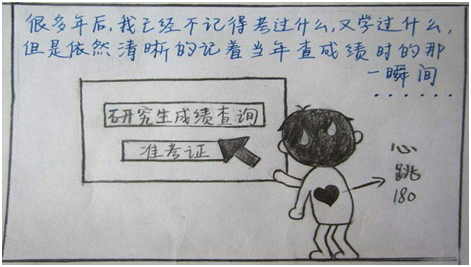 很多年后,我已经不记得考过什么,又学过什么,
但是依然清晰的记着当年查成绩时的那
一瞬间
......
研究生成绩查询
准考证
心
跳
180